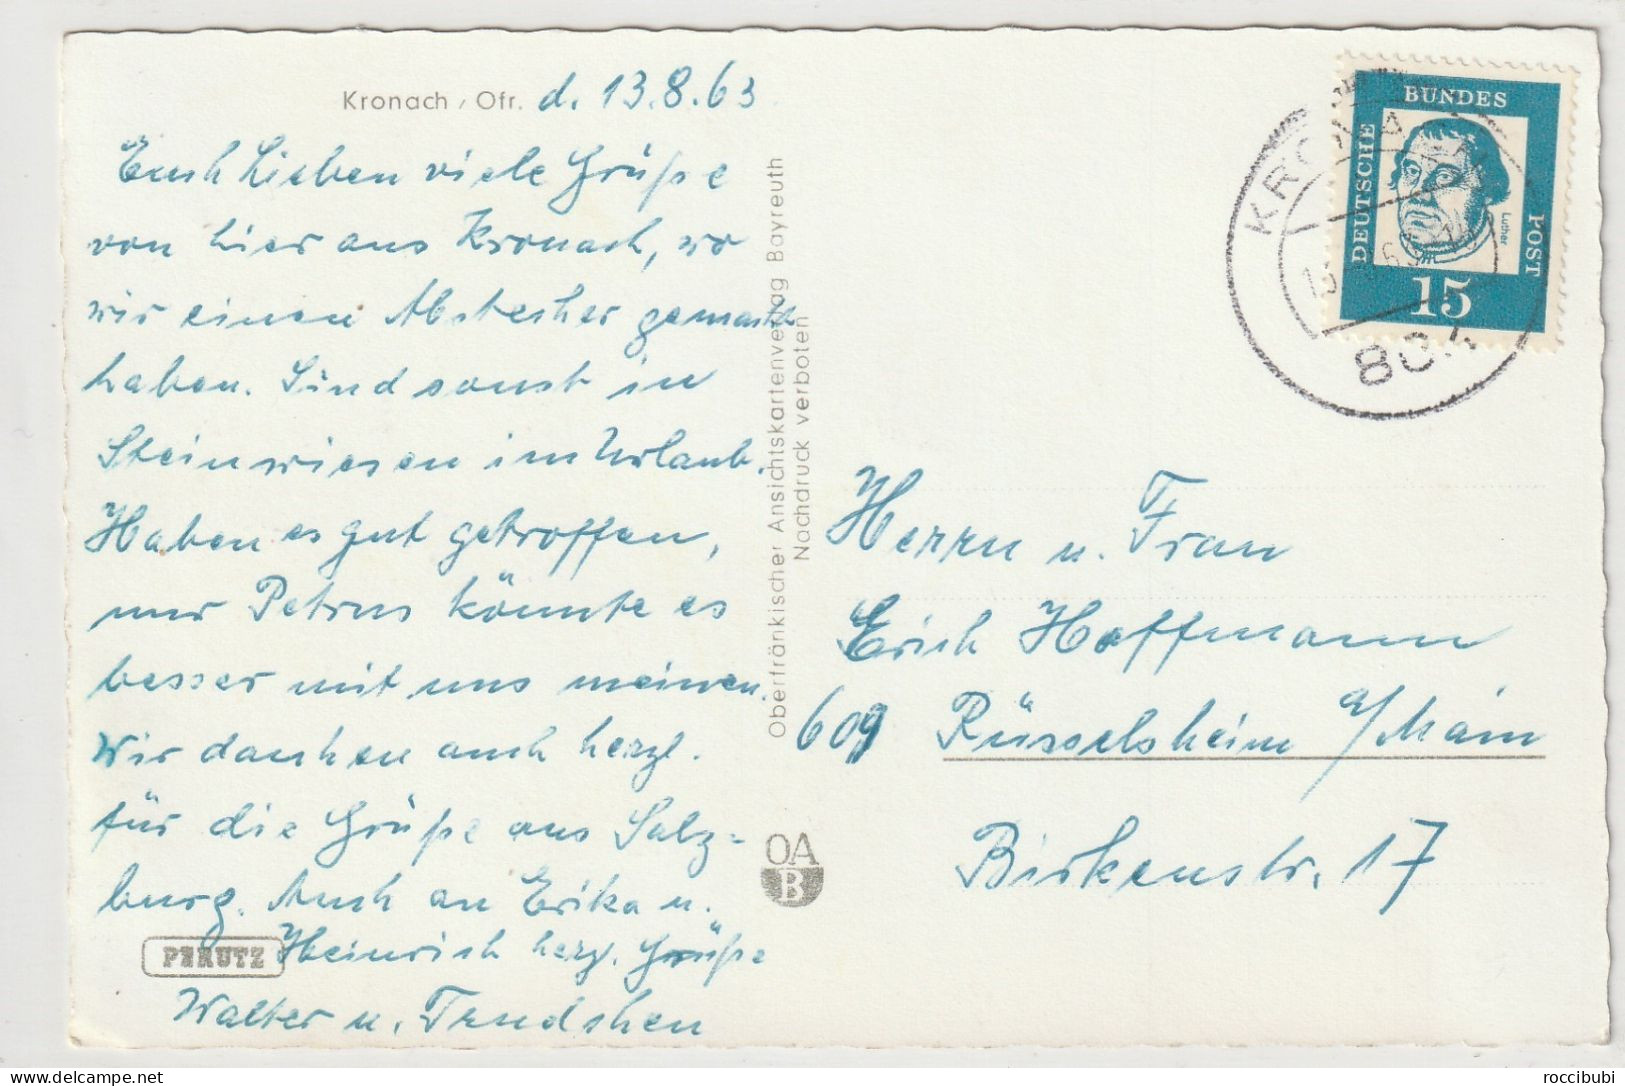 Kronach / Ofr. d. 13.8.63
Euch Lieben viele Grüße
von hier aus Kronach, wo
wir einen Abstecher gemacht
haben. Sind sonst in
Steinwiesen im Urlaub.
Haben es gut getroffen,
nur Petrus könnte es
besser mit uns meinen.
Wir danken auch herzl.
für die Grüße aus Salz=
burg. Auch an Erika u.
Heinrich herzl. Grüße
Walter u. Trudchen
PERUTZ
Oberfränkischer Ansichtskartenverlag Bayreuth
Nachdruck verboten
OA
B
DEUTSCHE
BUNDES
POST
Luther
15
KRONACH
Herrn u. Frau
Erich Hoffmann
609 Rüsselsheim a/Main
Birkenstr. 17
roccibubi